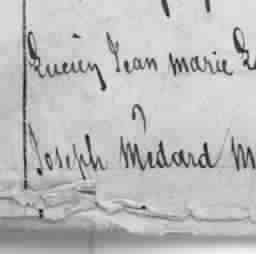 Lucien Jean marie
Joseph Médard M